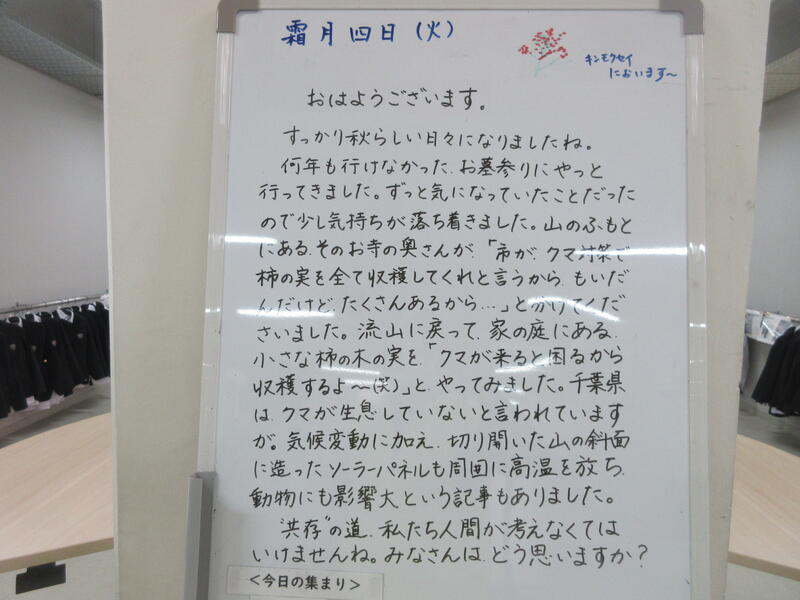 霜月四日(火)
キンモクセイ
においます〜
おはようございます。
すっかり秋らしい日々になりましたね。
何年も行けなかった、お墓参りにやっと
行ってきました。ずっと気になっていたことだった
ので少し気持ちが落ち着きました。山のふもと
にある、そのお寺の奥さんが、「市が、クマ対策で
柿の実を全て収穫してくれと言うから、もいだ
んだけど、たくさんあるから…」と分けてくだ
さいました。流山に戻って、家の庭にある、
小さな柿の木の実を、「クマが来ると困るから
収穫するよ〜(笑)」と、やってみました。千葉県
は、クマが生息していないと言われています
が。気候変動に加え、切り開いた山の斜面
に造ったソーラーパネルも周囲に高温を放ち、
動物にも影響大という記事もありました。
"共存"の道、私たち人間が考えなくては
いけませんね。みなさんは、どう思いますか?
<今日の集まり>